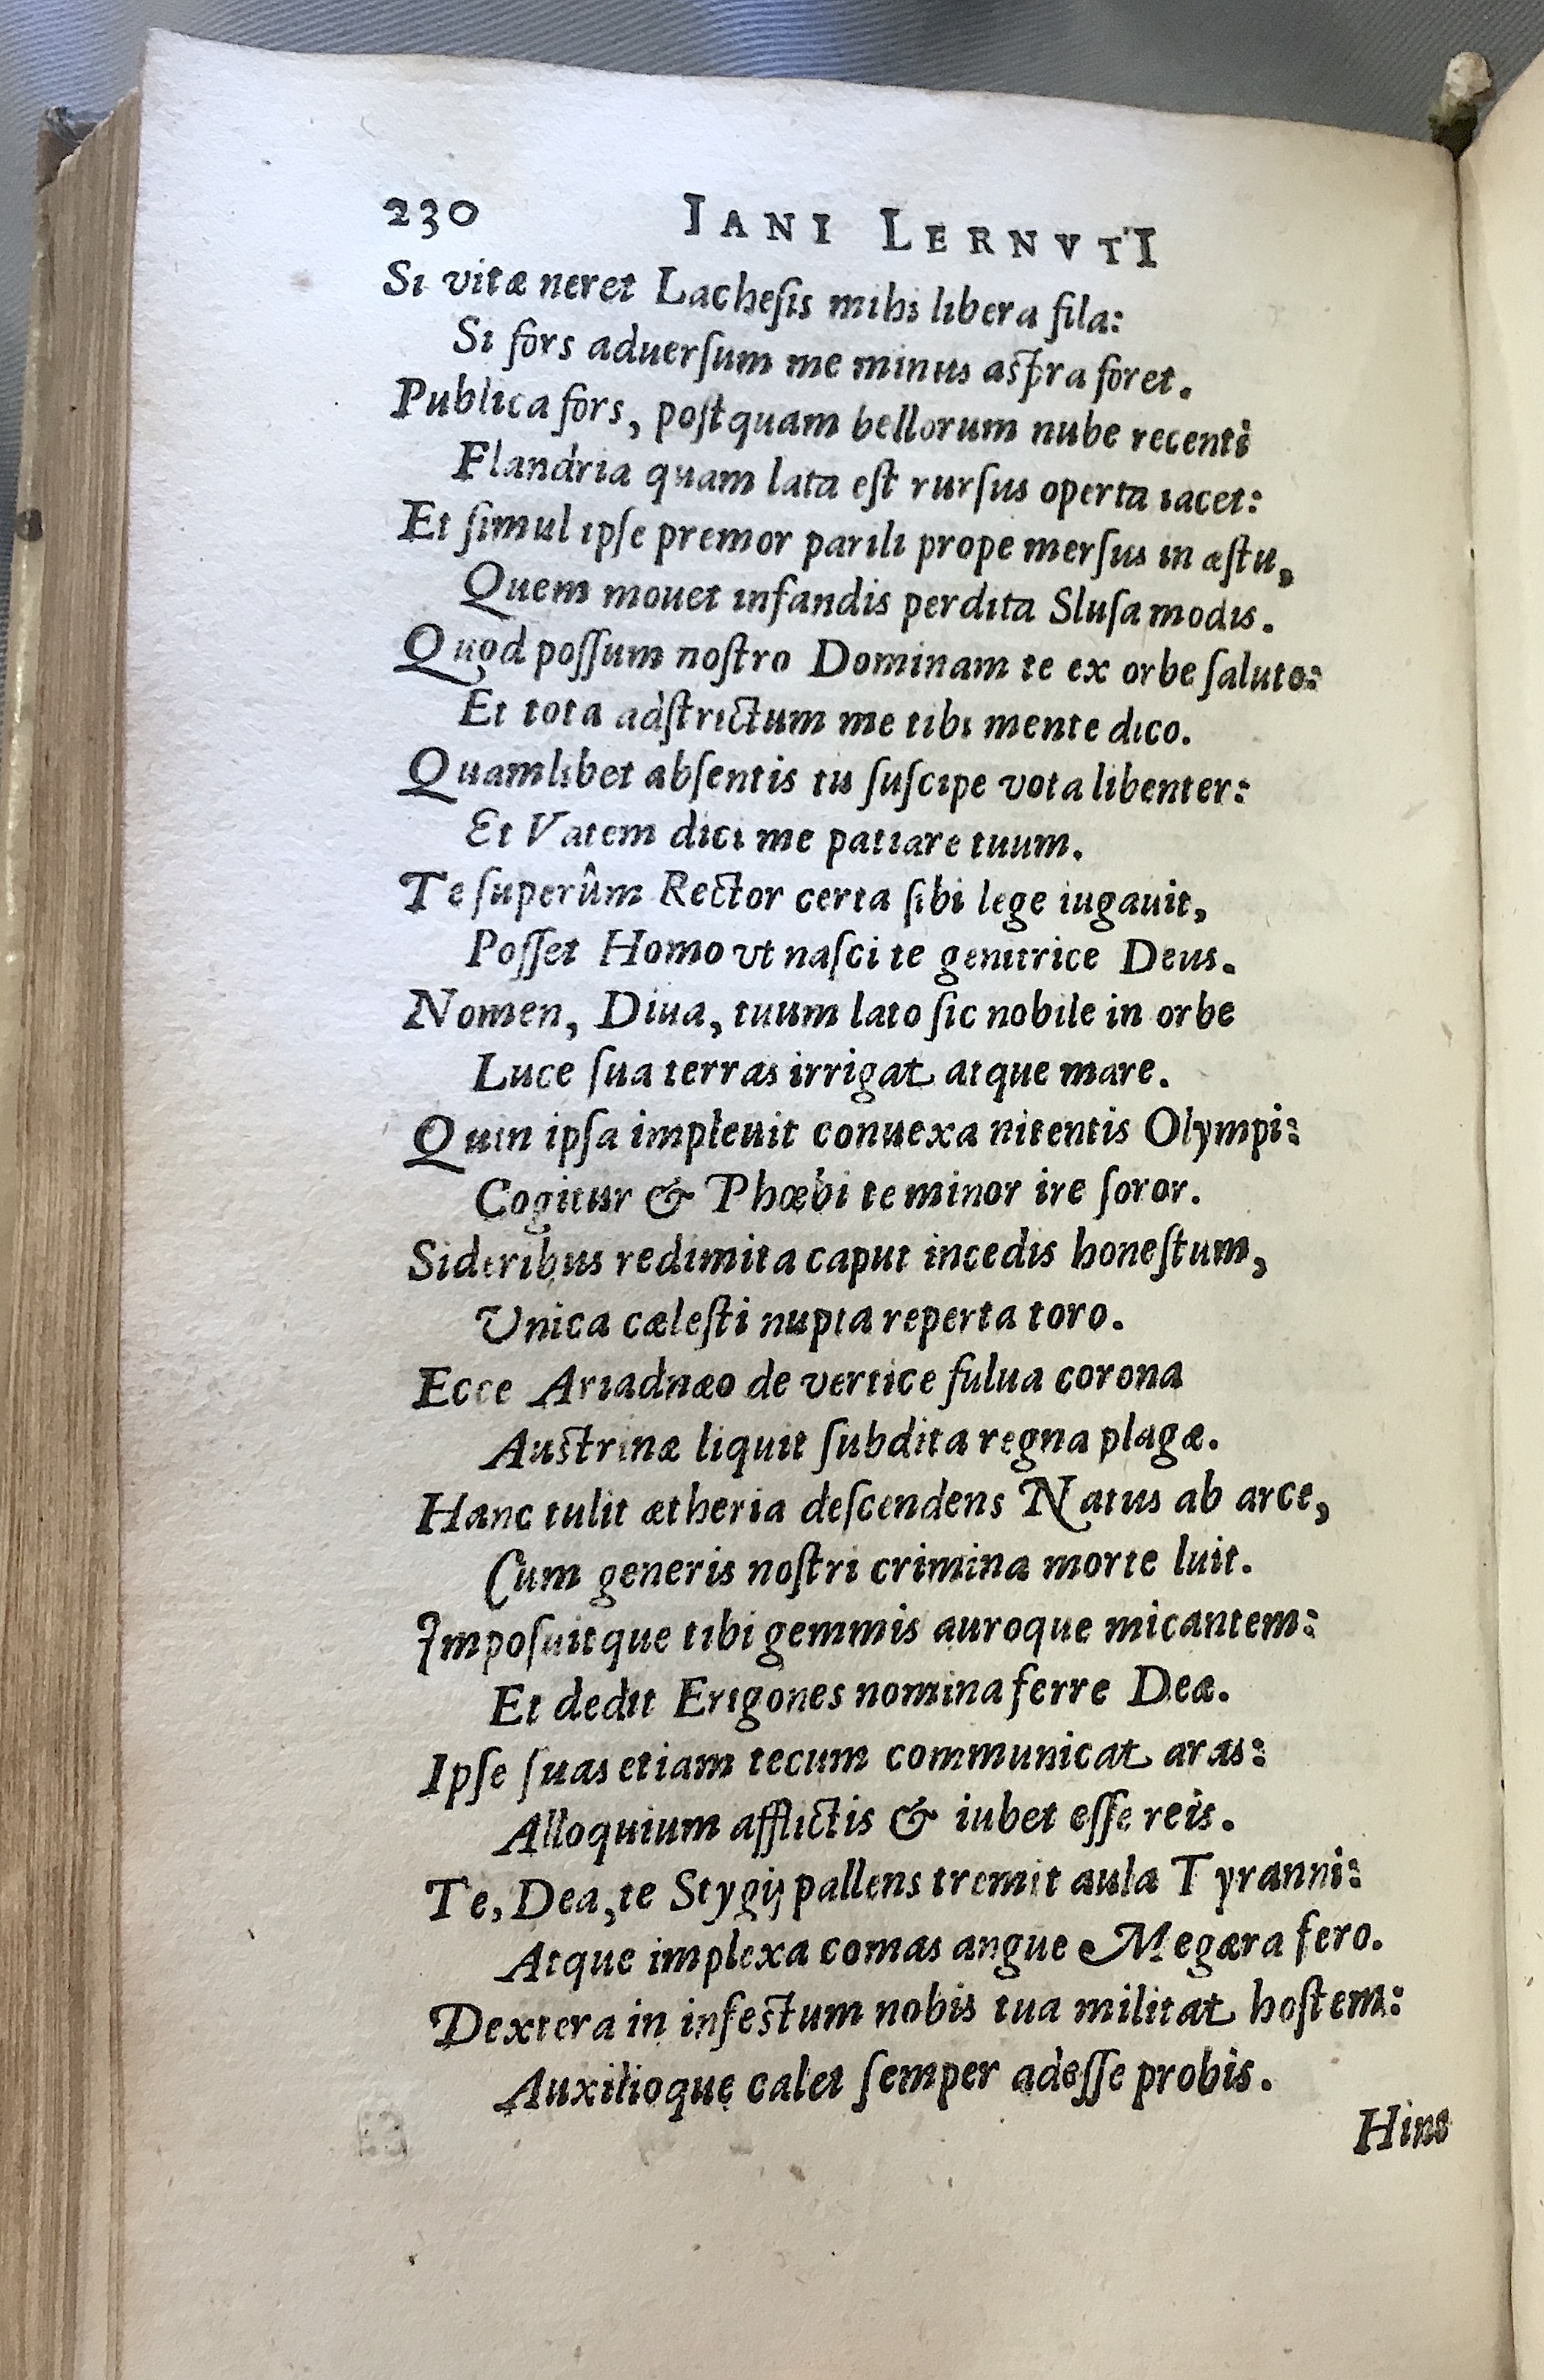 230 IANI LERNVTI
Si vitæ neret Lachesis mihi libera fila:
Si fors aduersum me minus aspra foret.
Publica fors, postquam bellorum nube recenti
Flandria quam lata est rursus operta iacet:
Et simul ipse premor parili prope mersus in æstu,
Quem mouet infandis perdita Slusa modis.
Quod possum nostro Dominam te ex orbe saluto:
Et tota adstrictum me tibi mente dico.
Quamlibet absentis tu suscipe vota libenter:
Et Vatem dici me patiare tuum.
Te superûm Rector certa sibi lege iugauit,
Posset Homo vt nasci te genitrice Deus.
Nomen, Diua, tuum lato sic nobile in orbe
Luce sua terras irrigat atque mare.
Quin ipsa impleuit conuexa nitentis Olympi:
Cogitur & Phœbi te minor ire soror.
Sideribus redimita caput incedis honestum,
Vnica cælesti nupta reperta toro.
Ecce Ariadnæo de vertice fulua corona
Austrinæ liquit subdita regna plagæ.
Hanc tulit ætheria descendens Natus ab arce,
Cum generis nostri crimina morte luit.
Imposuitque tibi gemmis auroque micantem:
Et dedit Erigones nomina ferre Deæ.
Ipse suas etiam tecum communicat aras:
Alloquium afflictis & iubet esse reis.
Te, Dea, te Stygij pallens tremit aula Tyranni:
Atque implexa comas angue Megæra fero.
Dextera in infestum nobis tua militat hostem:
Auxilioque calet semper adesse probis.
Hinc